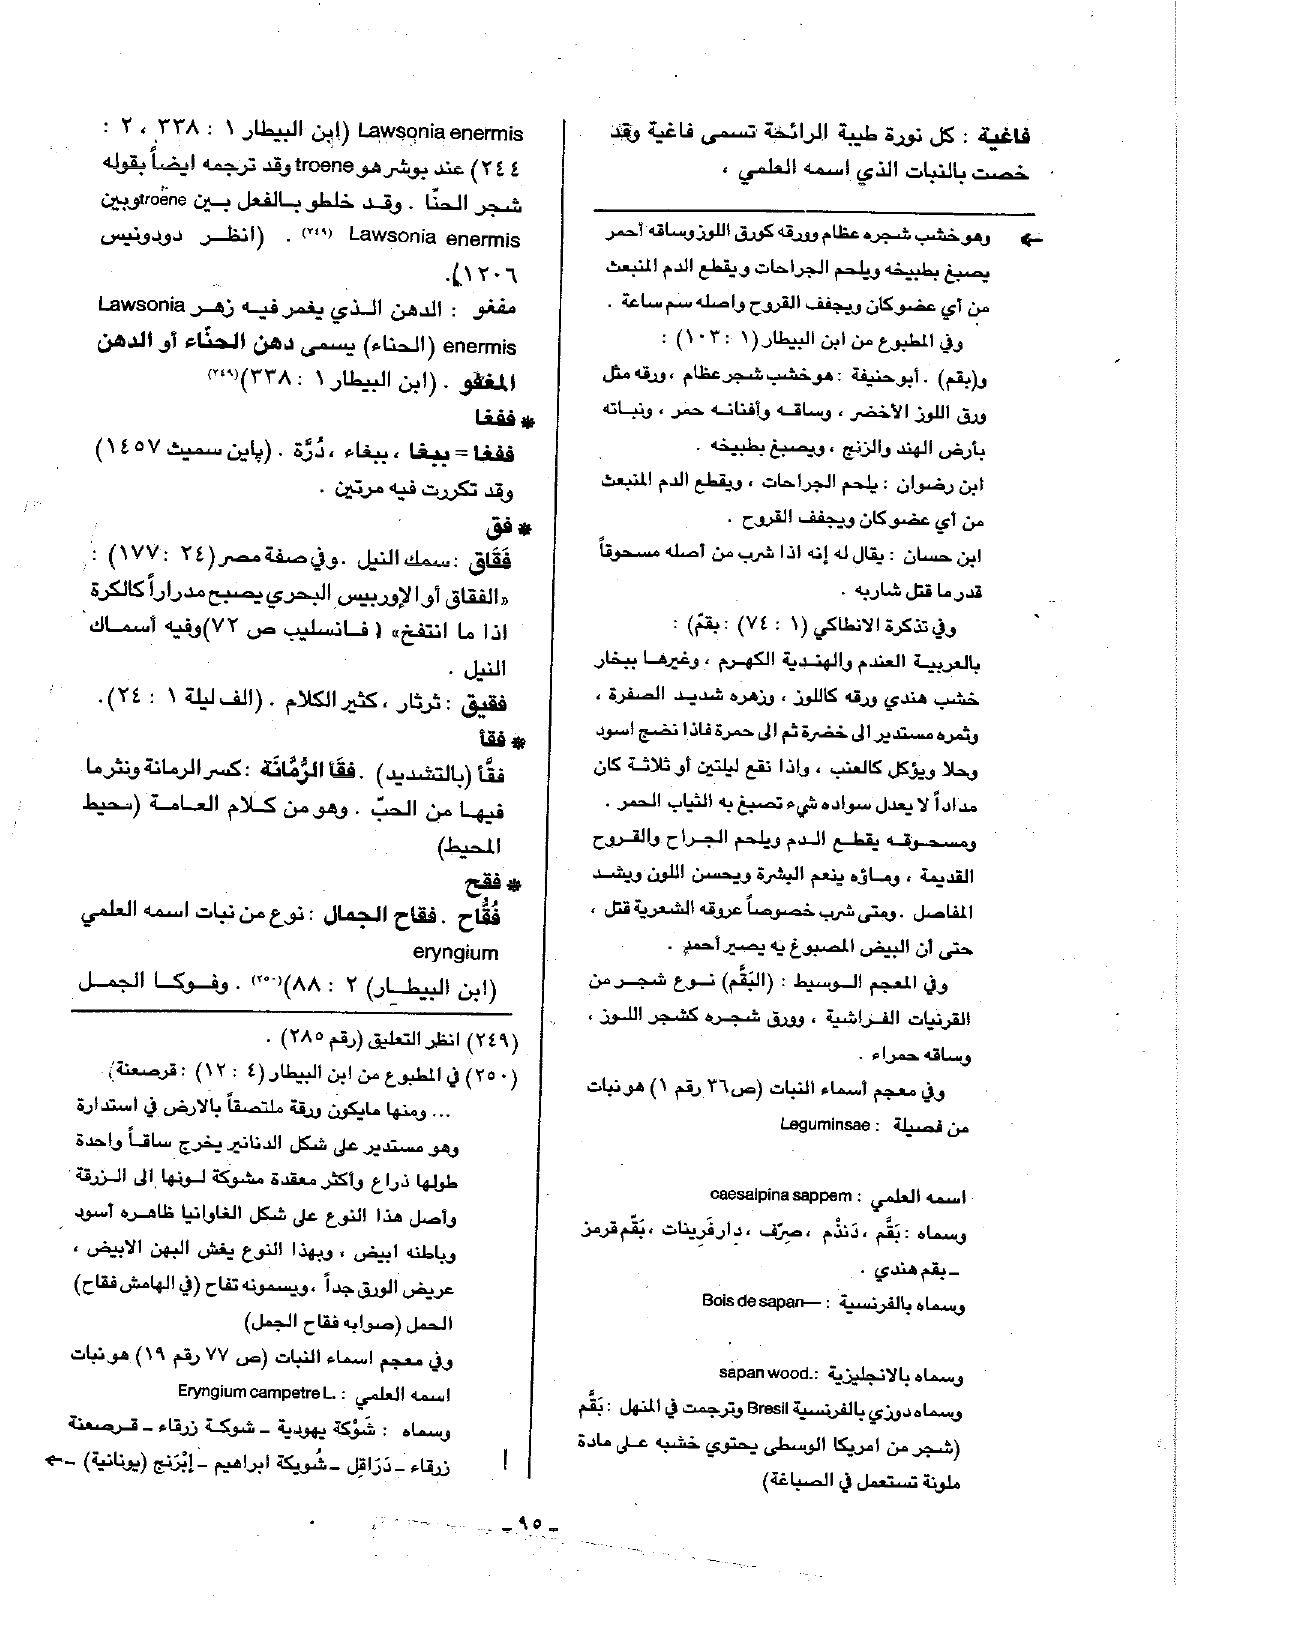 فاغية : كل نورة طيبة الرائحة تسمى فاغية وقد
خصت بالنبات الذي اسمه العلمي ،
← وهو خشب شجره عظام وورقه كورق اللوز وساقه أحمر
يصبغ بطبيخه ويلحم الجراحات ويقطع الدم المنبعث
من أي عضو كان ويجفف القروح واصله سم ساعة .
وفي المطبوع من ابن البيطار (١ : ١٠٣) :
و(بقم) . أبو حنيفة : هو خشب شجر عظام ، ورقه مثل
ورق اللوز الأخضر ، وساقه وأفنانه حمر ، ونباته
بأرض الهند والزنج ، ويصبغ بطبيخه .
ابن رضوان : يلحم الجراحات ، ويقطع الدم المنبعث
من أي عضو كان ويجفف القروح .
ابن حسان : يقال له إنه اذا شرب من أصله مسحوقاً
قدر ما قتل شاربه .
وفي تذكرة الانطاكي (١ : ٧٤) : بقمّ) :
بالعربية العندم والهندية الكهرم ، وغيرها ببخار
خشب هندي ورقه كاللوز ، وزهره شديد الصفرة ،
وثمره مستدير الى خضرة ثم الى حمرة فاذا نضج اسود
وحلا ويؤكل كالعنب ، واذا نقع ليلتين أو ثلاثة كان
مداداً لا يعدل سواده شيء تصبغ به الثياب الحمر .
ومسحوقه يقطع الدم ويلحم الجراح والقروح
القديمة ، وماؤه ينعم البشرة ويحسن اللون ويشد
المفاصل . ومتى شرب خصوصاً عروقه الشعرية قتل ،
حتى أن البيض المصبوغ به يصير أحمر .
وفي المعجم الوسيط : (البَقَّم) نوع شجر من
القرنيات الفراشية ، وورق شجره كشجر اللوز ،
وساقه حمراء .
وفي معجم أسماء النبات (ص٣٦ رقم ١) هو نبات
من فصيلة : Leguminsae
اسمه العلمي : caesalpina sappem
وسماه : بَقَّم ، دَنْدَم ، صِرّف ، دار فَرينات ، بَقّم قرمز
ـ بقم هندي .
وسماه بالفرنسية : —Bois de sapan
وسماه بالانجليزية :.sapan wood
وسماه دوزي بالفرنسية Bresil وترجمت في المنهل : بَقَّم
(شجر من امريكا الوسطى يحتوي خشبه على مادة
ملونة تستعمل في الصباغة)
Lawsonia enermis (ابن البيطار ١ : ٣٣٨ ، ٢ :
٢٤٤) عند بوشر هو troene وقد ترجمه ايضاً بقوله
شجر الحنّا . وقد خلطو بالفعل بين troëne وبين
Lawsonia enermis (٢٤٩) . (انظر دودونيس
١٢٠٦).
مفغو : الدهن الذي يغمر فيه زهر Lawsonia
enermis (الحناء) يسمى دهن الحنّاء أو الدهن
المغفو . (ابن البيطار ١ : ٣٣٨)(٢٤٩)
* ففغا
ففغا = ببغا ، ببغاء ، دُرَّة . (پاين سميث ١٤٥٧)
وقد تكررت فيه مرتين .
* فق
فَقَاق : سمك النيل . وفي صفة مصر (٢٤ : ١٧٧) :
«الفقاق أو الاوربيس البحري يصبح مدراراً كالكرة
اذا ما انتفخ» ( فانسليب ص ٧٢) وفيه أسماك
النيل .
فقيق : ثرثار ، كثير الكلام . (الف ليلة ١ : ٢٤).
* فقأ
فقَّا (بالتشديد) . فقَا الرُّمَّانَة : كسر الرمانة ونثر ما
فيها من الحبّ . وهو من كلام العامة (محيط
المحيط)
* فقح
فُقَّاح . فقاح الجمال : نوع من نبات اسمه العلمي
eryngium
(ابن البيطار) ٢ : ٨٨)(٢٥٠) . وفوكا الجمل
(٢٤٩) انظر التعليق (رقم ٢٨٥) .
(٢٥٠) في المطبوع من ابن البيطار (٤ : ١٢) : قرصعنة)
... ومنها مايكون ورقة ملتصقاً بالارض في استدارة
وهو مستدير على شكل الدنانير يخرج ساقاً واحدة
طولها ذراع وأكثر معقدة مشوكة لونها الى الزرقة
وأصل هذا النوع على شكل الفاوانيا ظاهره أسود
وباطنه ابيض ، وبهذا النوع يغش البهن الابيض ،
عريض الورق جداً ، ويسمونه تفاح (في الهامش فقاح)
الحمل (صوابه فقاح الجمل)
وفي معجم اسماء النبات (ص ٧٧ رقم ١٩) هو نبات
اسمه العلمي : .Eryngium campetre L
وسماه : شَوْكة يهودية ـ شوكة زرقاء ـ قرصعنة
زرقاء ـ دَرَاقل ـ شُويكة ابراهيم ـ إيْرَنج (يونانية) ـ←
ـ ٩٥ ـ